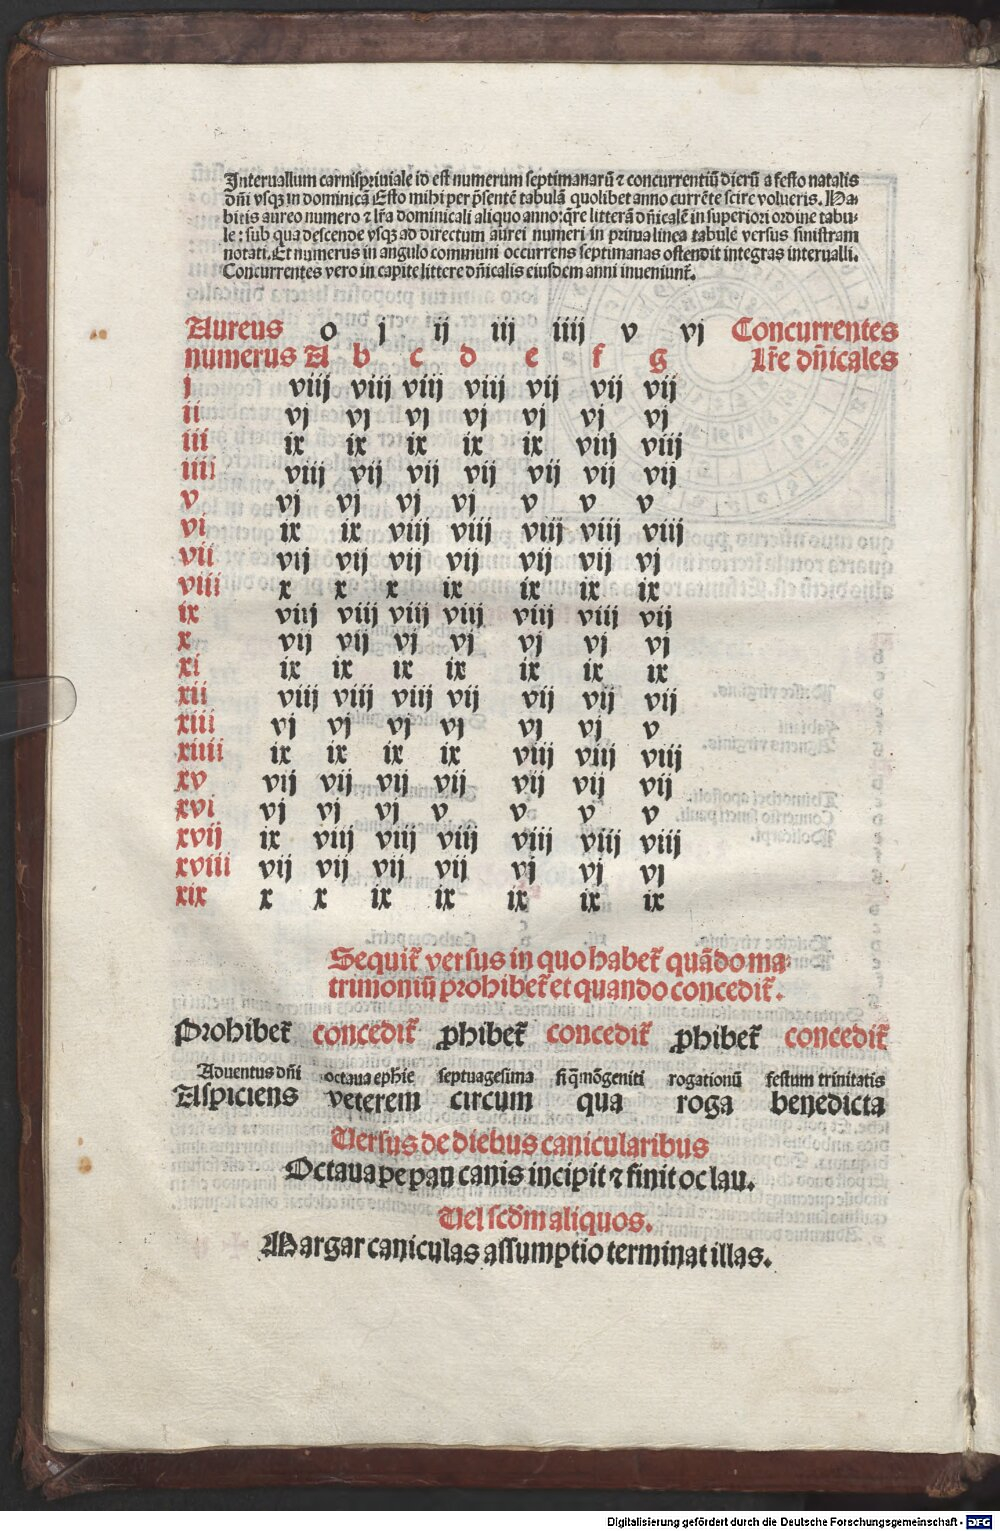 Interuallum carnispriuiale id est numerum septimanarū ⁊ concurrentiū dierū a festo natalis
dn̄i vsq; in dominicā Esto mihi per p̄sentē tabulā quolibet anno currēte scire volueris. Ha-
bitis aureo numero ⁊ lr̄a dominicali aliquo anno: q̄re litterā dn̄icalē in superiori ordine tabu-
le: sub qua descende vsq; ad directum aurei numeri in prima linea tabule versus sinistram
notati. Et numerus in angulo communi occurrens septimanas ostendit integras interualli.
Concurrentes vero in capite littere dn̄icalis eiusdem anni inueniunt̄.
Aureus o j ij iij iiij v vj Concurrentes
numerus A b c d e f g Lr̄e dn̄icales
j viij viij viij viij vij vij vij
ii vj vj vj vj vj vj vj
iii ix ix ix ix ix viij viij
iiij viij vij vij vij vij vij vij
v vj vj vj vj v v v
vi ix ix viij viij viij viij viij
vii vij vij vij vij vij vij vj
viii x x x ix ix ix ix
ix viij viij viij viij viij viij vij
x vij vij vj vj vj vj vj
xi ix ix ix ix ix ix ix
xii viij viij viij vij vij vij vij
xiii vj vj vj vj vj vj v
xiiii ix ix ix ix viij viij viij
xv vij vij vij vij vij vij vij
xvi vj vj vj v v v v
xvij ix viij viij viij viij viij viij
xviii vij vij vij vij vj vj vj
xix x x ix ix ix ix ix
Sequit̄ versus in quo habet̄ quādo ma
trimoniū prohibet̄ et quando concedit̄.
Prohibet̄ concedit̄ ꝓhibet̄ concedit̄ ꝓhibet̄ concedit̄
Aduentus dn̄i octaua ephie septuagesima si q̄mōgeniti rogationū festum trinitatis
Aspiciens veterem circum qua roga benedicta
Uersus de diebus canicularibus
Octaua pe pau canis incipit ⁊ finit oc lau.
Uel scd̄m aliquos.
Margar caniculas assumptio terminat illas.
Digitalisierung gefördert durch die Deutsche Forschungsgemeinschaft - DFG